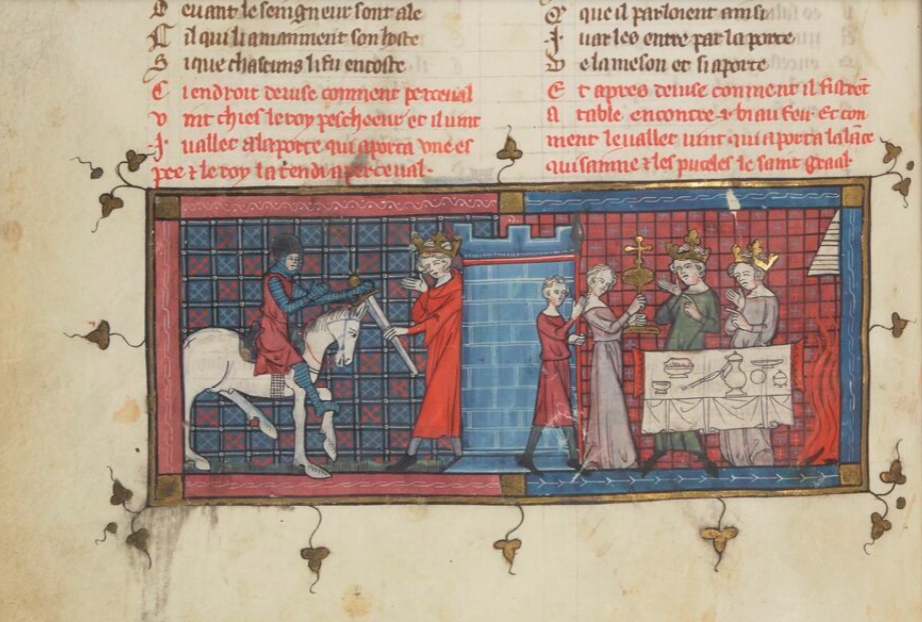 D evant le seigneur sont ale
C il qui li amainnent son hoste
S i que chascuns li fu encoste
C i endroit deuise comment perceual
v int chies le roy pescheeur et il uint
.I. uallet a la porte qui aporta vne es
pee & le roy la tendi a perceual.
Q que il parloient ainsi
.I. uarles entre par la porte
D e la meson et si aporte
E t apres deuise comment il sistrent
A table encontre .i. biau feu. Et com
ment le uallet uint qui aporta la lance
qui sainne & les puceles le saint graal.